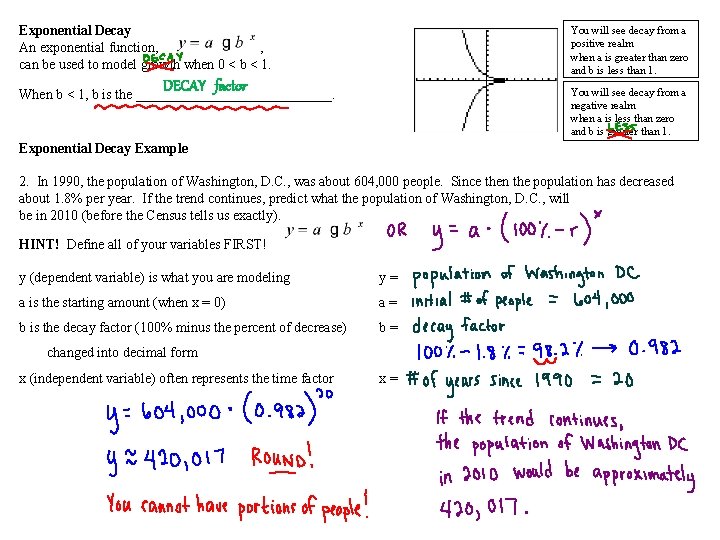 Exponential Decay
An exponential function, y = a g b ˣ ,
can be used to model growth DECAY when 0 < b < 1.
When b < 1, b is the DECAY factor.
You will see decay from a
positive realm
when a is greater than zero
and b is less than 1.
You will see decay from a
negative realm
when a is less than zero
and b is LESS than 1.
Exponential Decay Example
2. In 1990, the population of Washington, D.C., was about 604,000 people. Since then the population has decreased
about 1.8% per year. If the trend continues, predict what the population of Washington, D.C., will
be in 2010 (before the Census tells us exactly). y = a g b ˣ OR y = a · (100% - r)ˣ
HINT! Define all of your variables FIRST!
y (dependent variable) is what you are modeling y = population of Washington DC
a is the starting amount (when x = 0) a = initial # of people = 604,000
b is the decay factor (100% minus the percent of decrease) b = decay factor
changed into decimal form 100% - 1.8% = 98.2% → 0.982
x (independent variable) often represents the time factor x = # of years since 1990 = 20
y = 604,000 · (0.982)²⁰
y ≈ 420,017 ROUND!
You cannot have portions of people!
If the trend continues,
the population of Washington DC
in 2010 would be approximately
420,017.